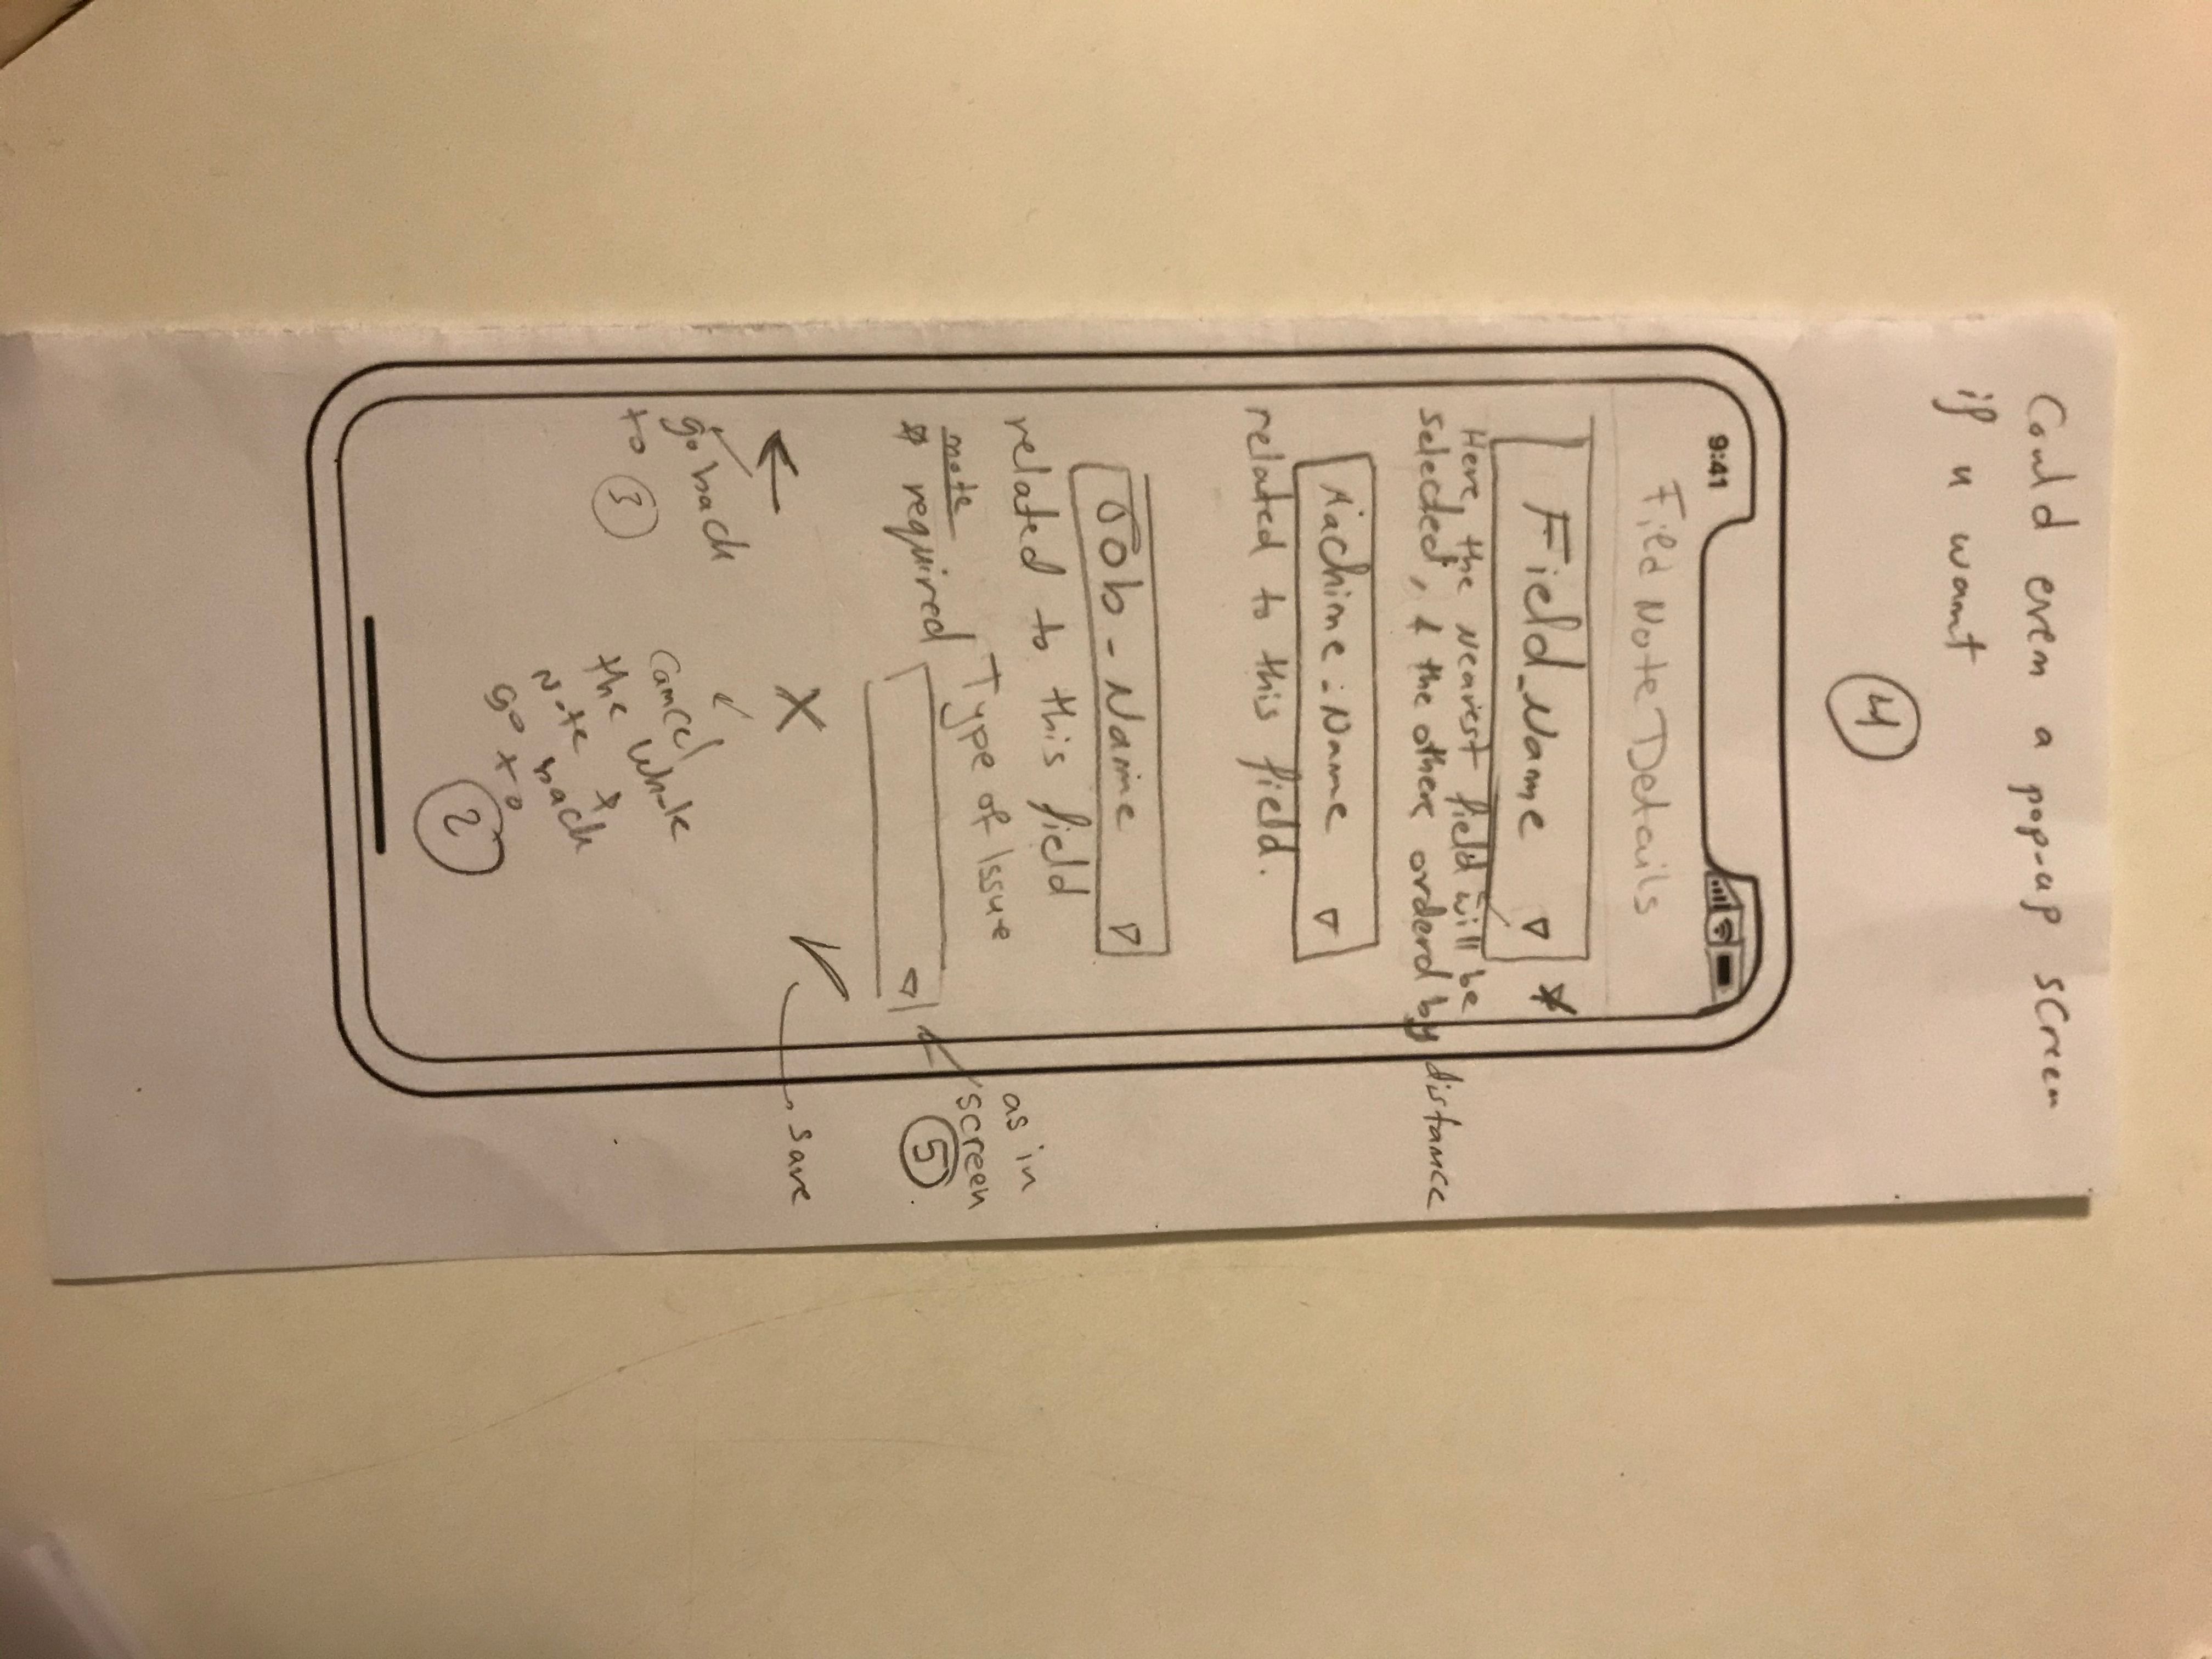 Could even a pop-up screen
if u want
4
9:41
Field Note Details
Field_Name ▽ *
Here, the Nearest field will be
selected, & the others orderd by distance
Machine-Name ▽
related to this field.
Job-Name ▽
related to this field
Type of Issue
note
* required
as in
screen
5
save
go back
to 3
X
Cancel
the whole
Note &
go back
to
2